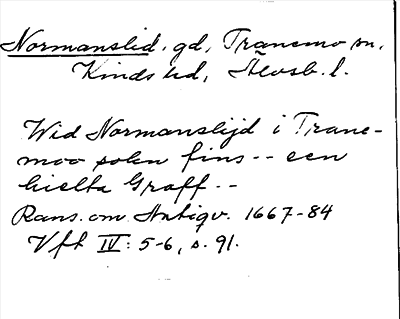 Normanslid. gd, Tranemo sn,
Kinds hd, Älvsb. l.
Wid Normanslijd i Trane-
moo sokn fins -- een
hielta Graff --
Rans. om Antiqv. 1667-84
Vft IV: 5-6, s. 91.